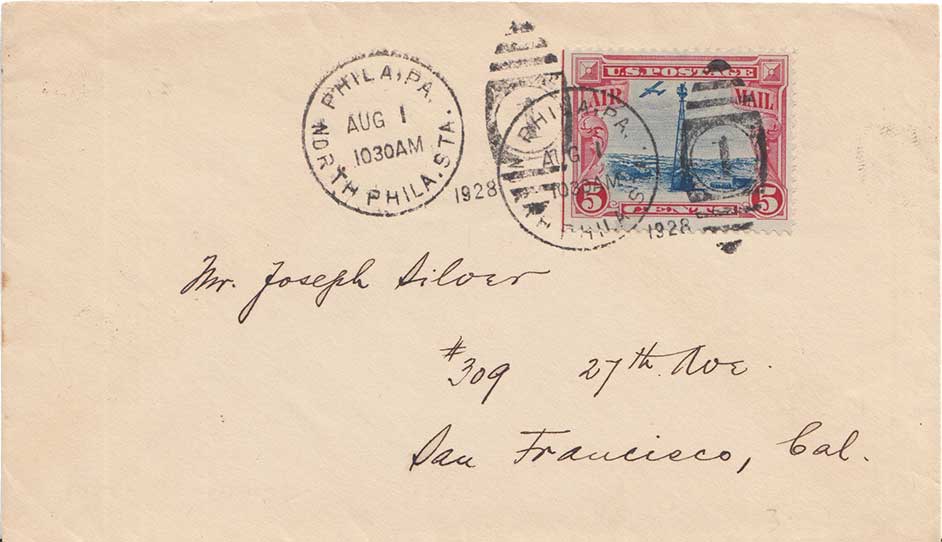 PHILA, PA.
AUG 1
1030AM
NORTH PHILA. STA.
1928
PHILA, PA.
AUG 1
1030AM
1928
1
U.S. POSTAGE
AIR MAIL
5 CENTS 5
Mr. Joseph Silver
#309 27th Ave.
San Francisco, Cal.